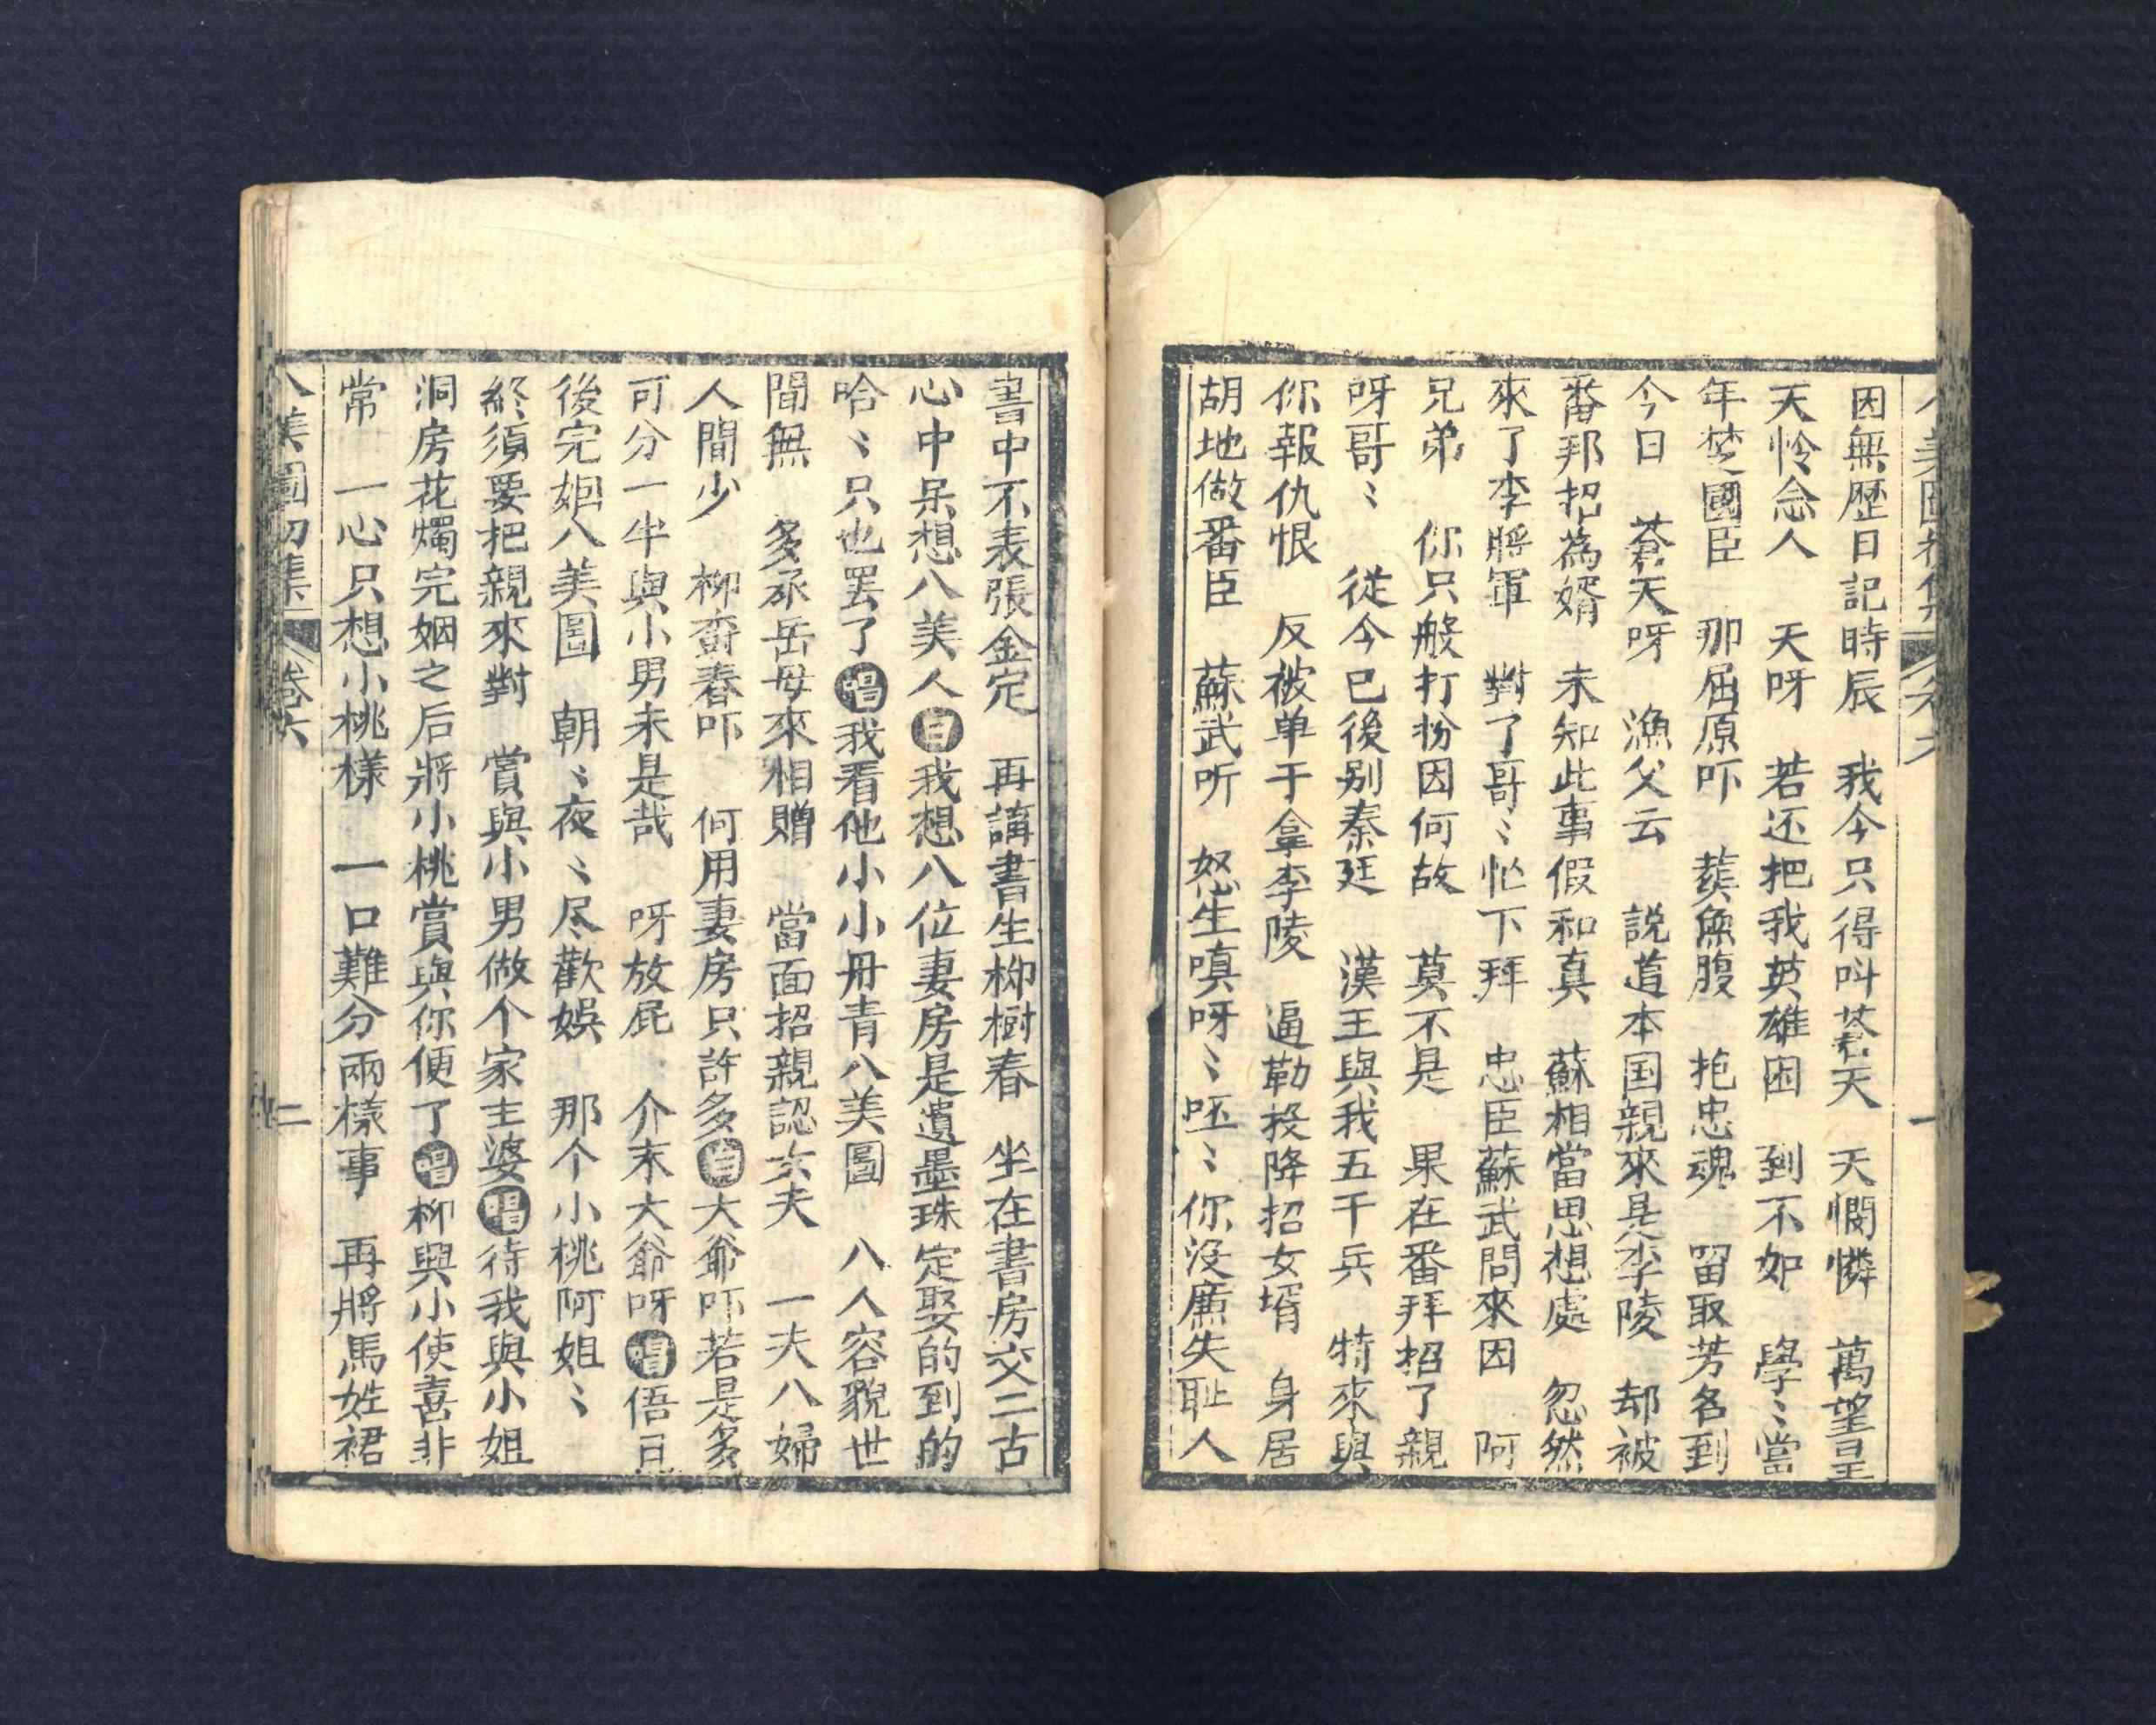 因無歷日記時辰　我今只得叫蒼天　天憫憐　萬望皇
天怜念人　天呀　若还把我英雄困　到不如　學〻當
年楚國臣　那屈原吓　𦵏魚腹　抱忠魂　留取芳名到
今日　蒼天呀　漁父云　説道本国親來是李陵　却被
番邦招為婿　未知此事假和真　蘇相當思想處　忽然
來了李將軍　對了哥〻忙下拜　忠臣蘇武問來因　阿
兄弟　你只般打扮因何故　莫不是　果在番拜招了親
呀哥〻　從今已後别秦廷　漢王與我五千兵　特來與
你報仇恨　反被单于拿李陵　逼勒投降招女壻　身居
胡地做番臣　蘇武听　怒生嗔呀〻呸〻你沒廉失恥人
八美圖初集　卷六　一
書中不表張金定　再講書生柳樹春　坐在書房交二古
心中呆想八美人白我想八位妻房是遺墨珠定娶的到的
哈〻只也罢了唱我看他小小丹青八美圖　八人容貌世
間無　多承岳母來相贈　當面招親認丈夫　一夫八婦
人間少　柳樹春吓　何用妻房只許多白大爺吓若是多
可分一半與小男未是哉　呀放屁　介末大爺呀唱俉且
後完姻八美圖　朝〻夜〻尽歡娛　那个小桃阿姐〻
終須要把親來對　賞與小男做个家主婆唱待我與小姐
洞房花燭完姻之后將小桃賞與你便了唱柳興小使喜非
常　一心只想小桃樣　一口難分兩樣事　再將馬姓裙
八美圖初集　卷六　二